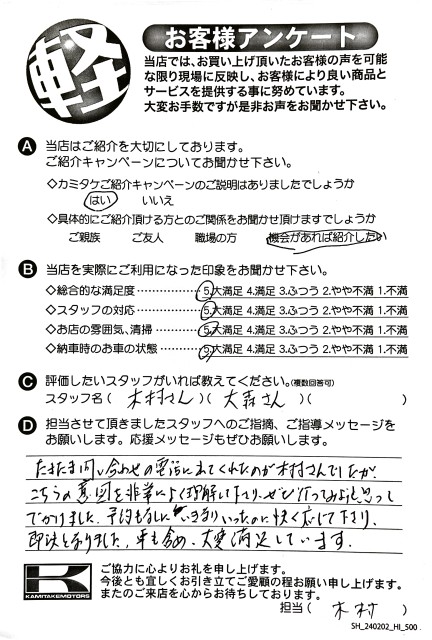 軽
お客様アンケート
当店では、お買い上げ頂いたお客様の声を可能
な限り現場に反映し、お客様により良い商品と
サービスを提供する事に努めています。
大変お手数ですが是非お声をお聞かせ下さい。
A 当店はご紹介を大切にしております。
ご紹介キャンペーンについてお聞かせ下さい。
◇カミタケご紹介キャンペーンのご説明はありましたでしょうか
はい いいえ
◇具体的にご紹介頂ける方とのご関係をお聞かせ頂けますでしょうか
ご親族 ご友人 職場の方 機会があれば紹介したい
B 当店を実際にご利用になった印象をお聞かせ下さい。
◇総合的な満足度 5.大満足 4.満足 3.ふつう 2.やや不満 1.不満
◇スタッフの対応 5.大満足 4.満足 3.ふつう 2.やや不満 1.不満
◇お店の雰囲気、清掃 5.大満足 4.満足 3.ふつう 2.やや不満 1.不満
◇納車時のお車の状態 5.大満足 4.満足 3.ふつう 2.やや不満 1.不満
C 評価したいスタッフがいれば教えてください。(複数回答可)
スタッフ名(木村さん)(大森さん)( )
D 担当させて頂きましたスタッフへのご指摘、ご指導メッセージを
お願いします。応援メッセージもぜひお願いします。
たまたま問い合わせの電話に出てくれたのが木村さんでしたが、
こちらの意図を非常によく理解して下り、ぜひ行ってみようと思って
でかけました。予約もなしに いきなりいったのに快く応じて下り、
即決となりました。車も含め、大変満足しています。
K
KAMITAKEMOTORS
ご協力に心よりお礼を申し上げます。
今後とも宜しくお引き立てご愛顧の程お願い申し上げます。
またのご来店を心からお待ちしております。
担当(木村)
SH_240202_HI_500